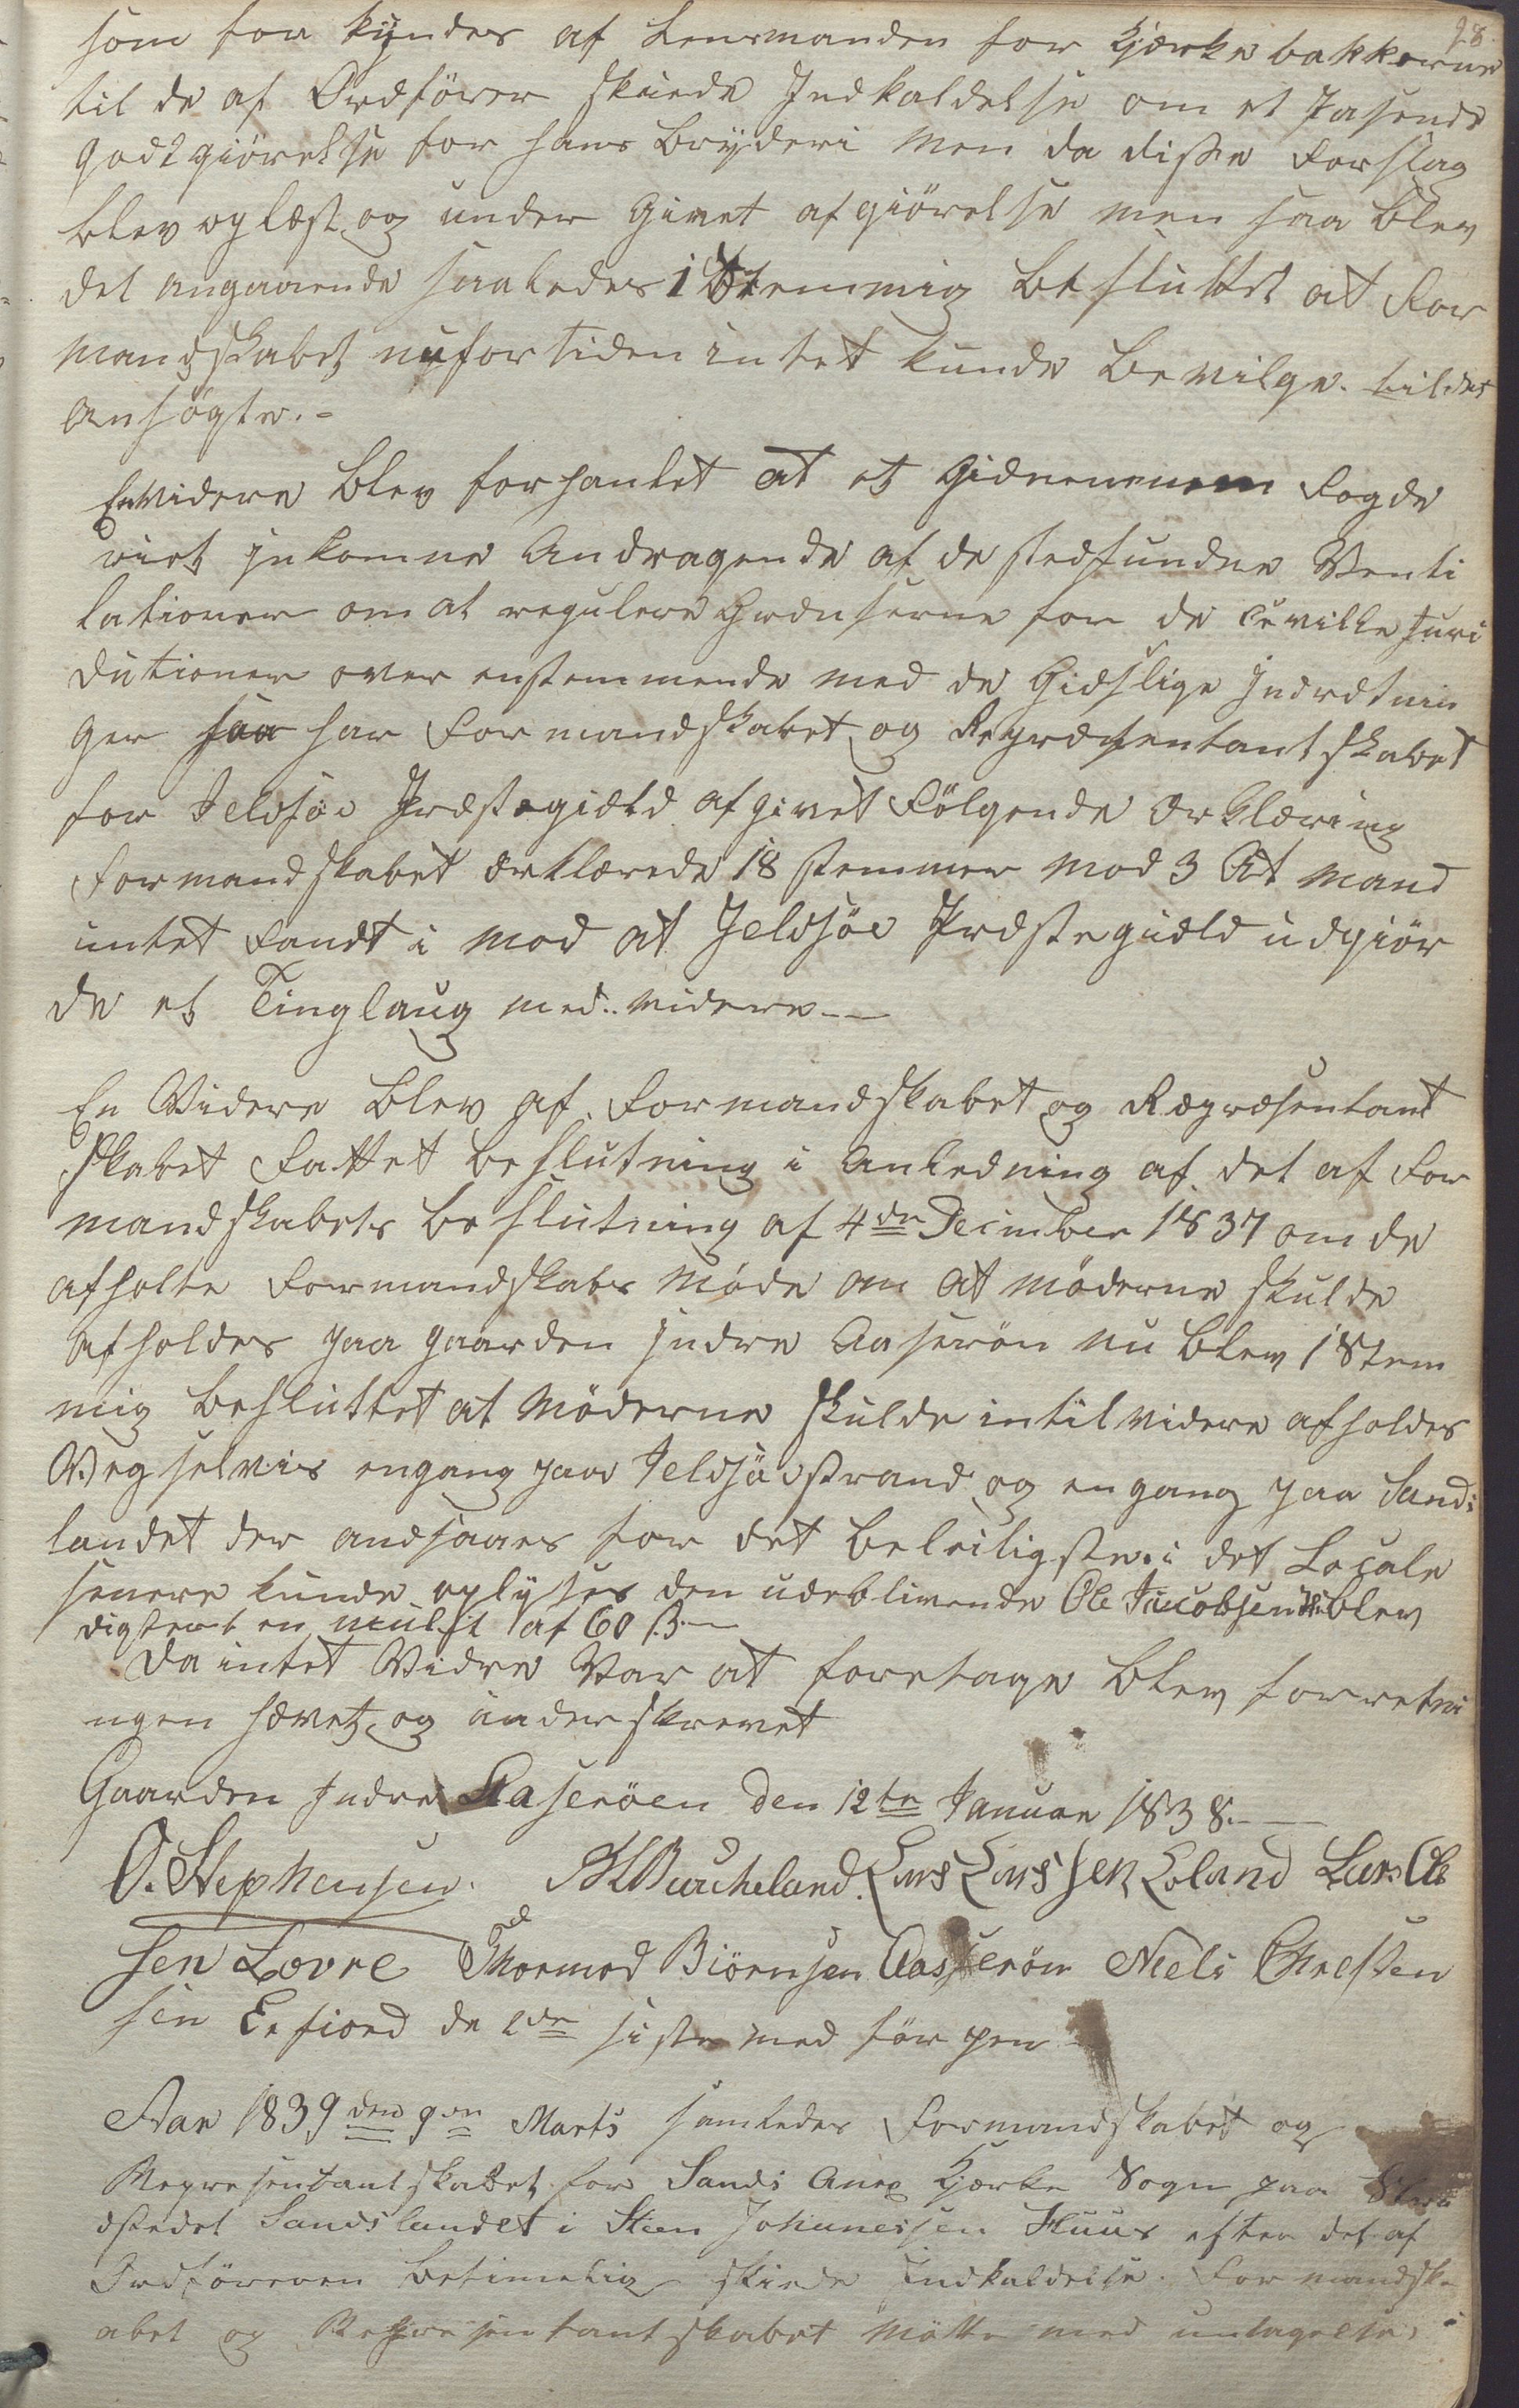 28.
som for kyndes af Lensmanden for Kjærke bakkerne
til de af Ordfører skeede Indkaldelse om et Pasende
godtgiörelse for hans bryderi Men da disse Forslag
blev oplæst og under Givet afgiörelse men saa blev
det angaaende saaledes 1 Stemmig besluttet at For
mandskabet nufortiden intet kunde bevilge til det
Ansögte. -
Envidere blev forhanlet at et Gienemmem Fogde
riet inkomne Andragende af de stedfundne Venti
lationer om at regulere Grændserne for de Civille Juri
dictioner over enstemmende med de Giestlige Inrætnin
ger saa har Formandskabet og Repræsentantskabet
for Jelsöe Præstegield afgivet Fölgende Erklæring
Formandskabet erklærede 18 stemmer mod 3 At mand
intet Fandt i mod at Jelsöe Præstegield udgiör
de et Tinglaug med.. videre --
En Videre blev af Formandskabet og Repræsentant
skabet Fattet beslutning i Anledning af det af For
mandskabets beslutning af 4de December 1837 om de
afholte Formandskabs Møde om at möderne skulde
afholdes paa gaarden Indre Aaserön nu blev 1 Stem
mig besluttet at Möderne skulde intil videre afholdes
Vegselvis engang paa Jelsöestrand og en gang paa Sands
landet der andsaaes for det beleiligste i det Locale
senere kunde oplyses den udeblivende Ole Jacobsen blev
digtert en mulct af 60 ß. -
Da intet Vidre Var at foretage blev forretni
ngen hævet og underskrevet
Gaarden Indre Aaseröen den 12te Januar 1838. -
O. Stephensen. Lars Larssen Eoland Lars Ole
sen Lovre Thormod Biörnsen Aasserön Neels Chresten
sen Erfiord de 2de siste med för pen
Aar 1839 den 9de Marts samledes Formandskabet og
Representantskabet for Sands Anex Kjærke Sogn paa
dstedet Sandslandet i Steen Johannessen Huus efter det af
Ordföreren betimelig skeede Indkaldelse. Formandsk-
abet og Representantskabet Mötte med untagelse